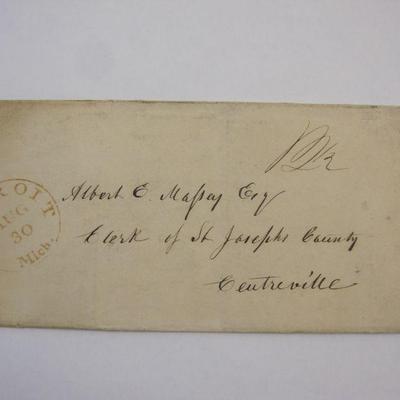 ROIT
AUG
30
Mich.
Albert E. Massey Esq
Clerk of St Josephs County
Centreville